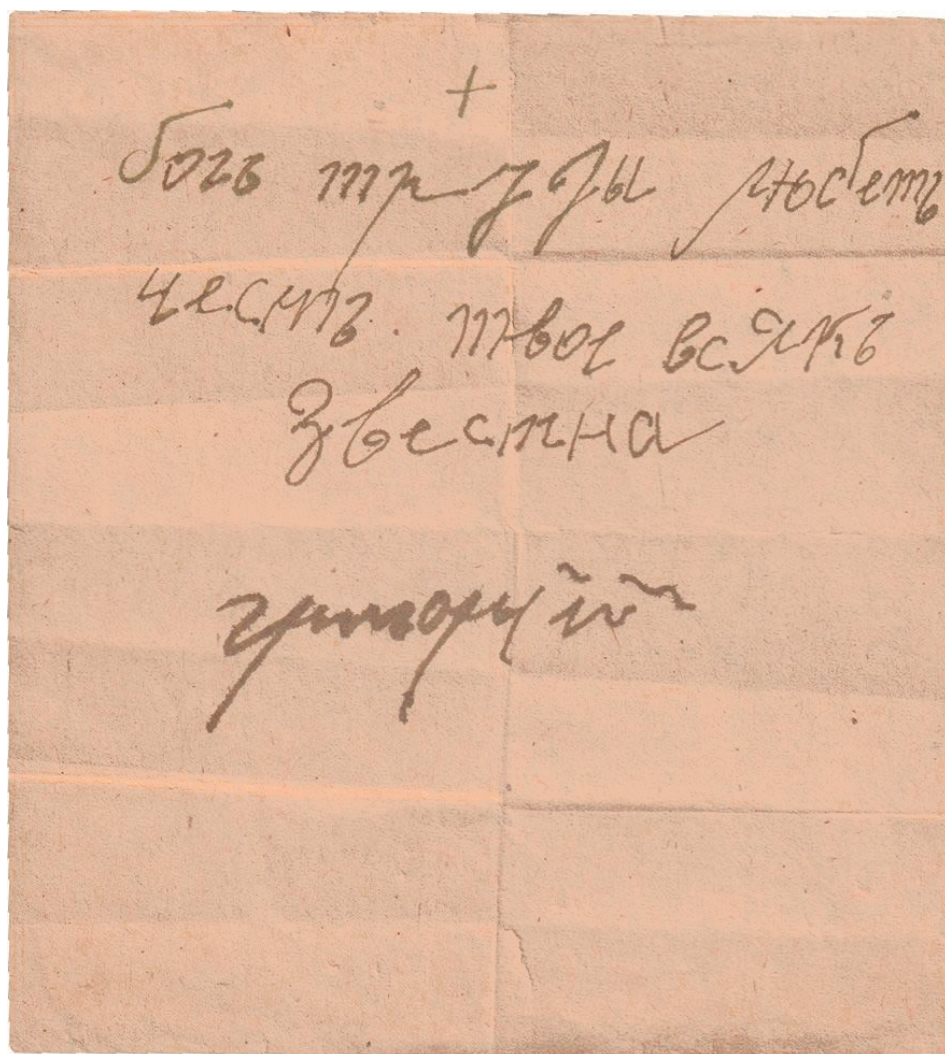 +
богъ труды люсбеть
честь. твое всякъ
звестна
григорий